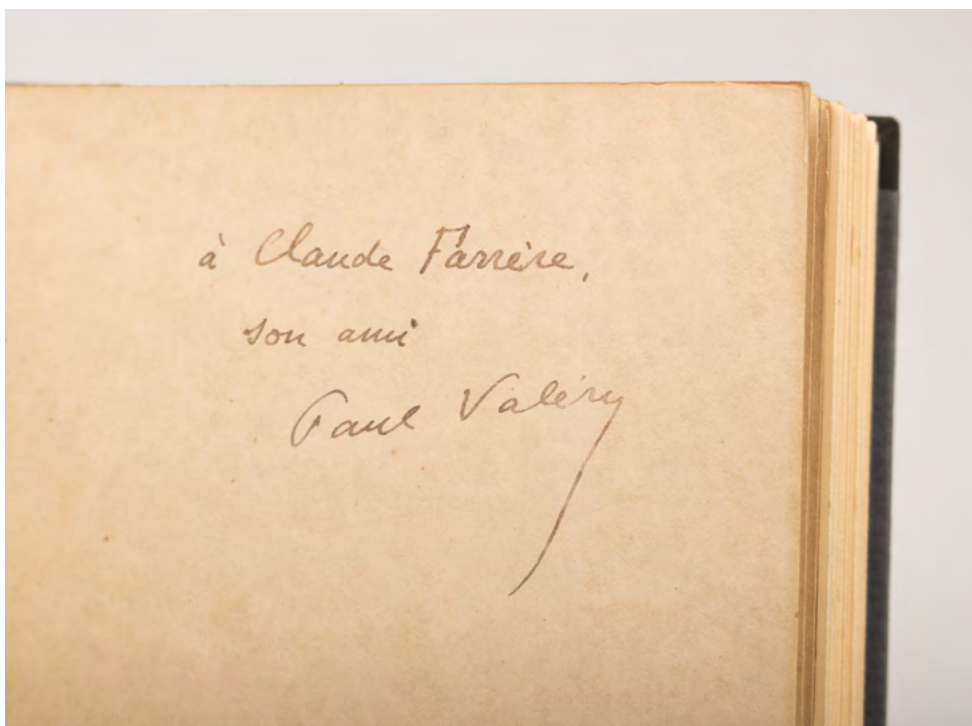 à Claude Farrère,
son ami
Paul Valéry